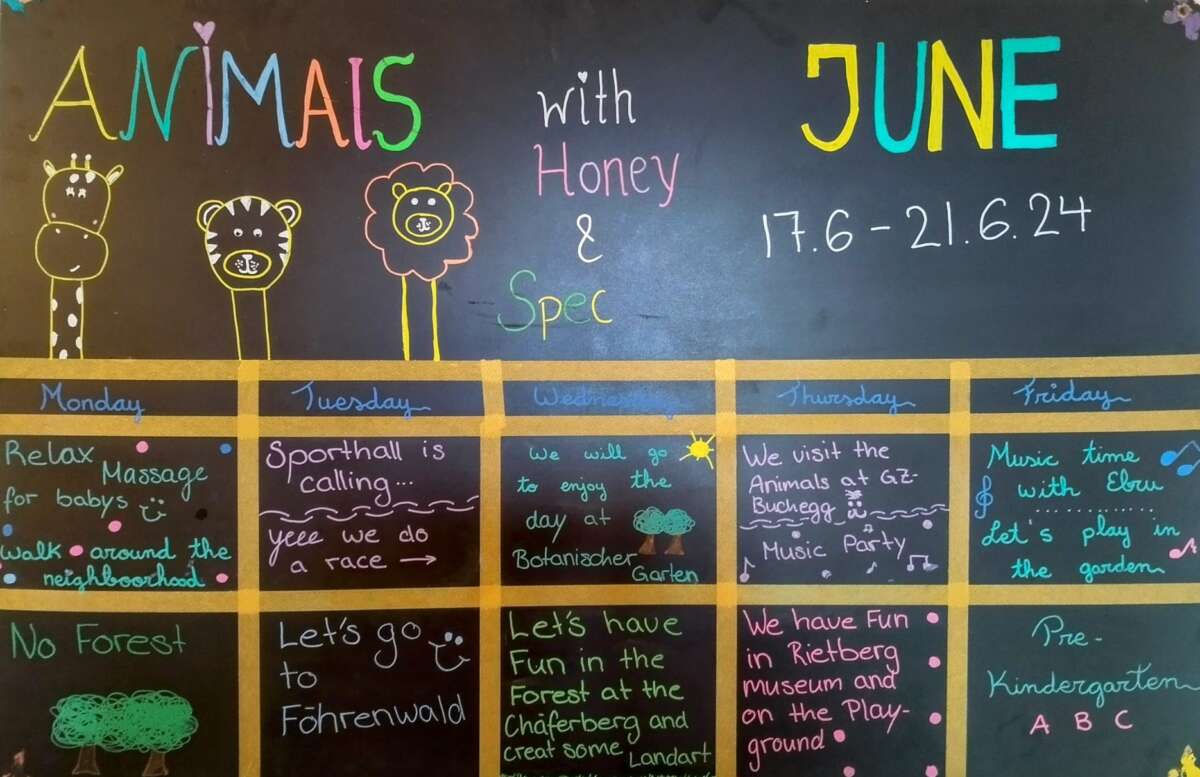 ANIMALS
with
Honey
&
Spec
JUNE
17.6 - 21.6.24
Monday
Tuesday
Wednesday
Thursday
Friday
Relax
Massage
for babys
walk around the
neighboorhood
Sporthall is
calling...
yeee we do
a race →
We will go
to enjoy the
day at
Botanischer
Garten
We visit the
Animals at GZ-
Buchegg
Music Party
Music time
with Ebru
..............
Let's play in
the garden
No Forest
Let's go
to
Föhrenwald
Let's have
Fun in the
Forest at the
Chäferberg and
creat some Landart
We have Fun
in Rietberg
museum and
on the Play-
ground
Pre-
Kindergarten
A B C